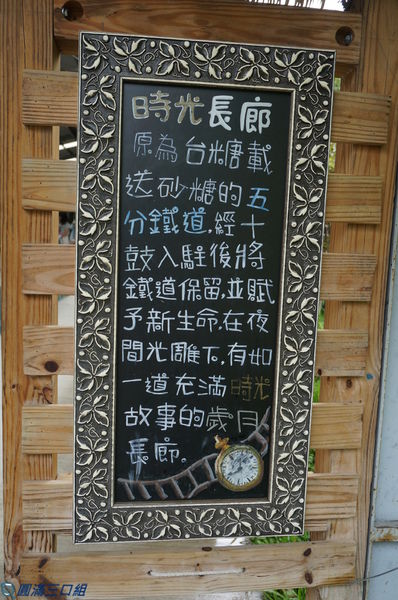 時光長廊
原為台糖載
送砂糖的五
分鐵道,經十
鼓入駐後將
鐵道保留,並賦
予新生命,在夜
間光雕下,有如
一道充滿時光
故事的歲月
長廊。
圓滿三口組